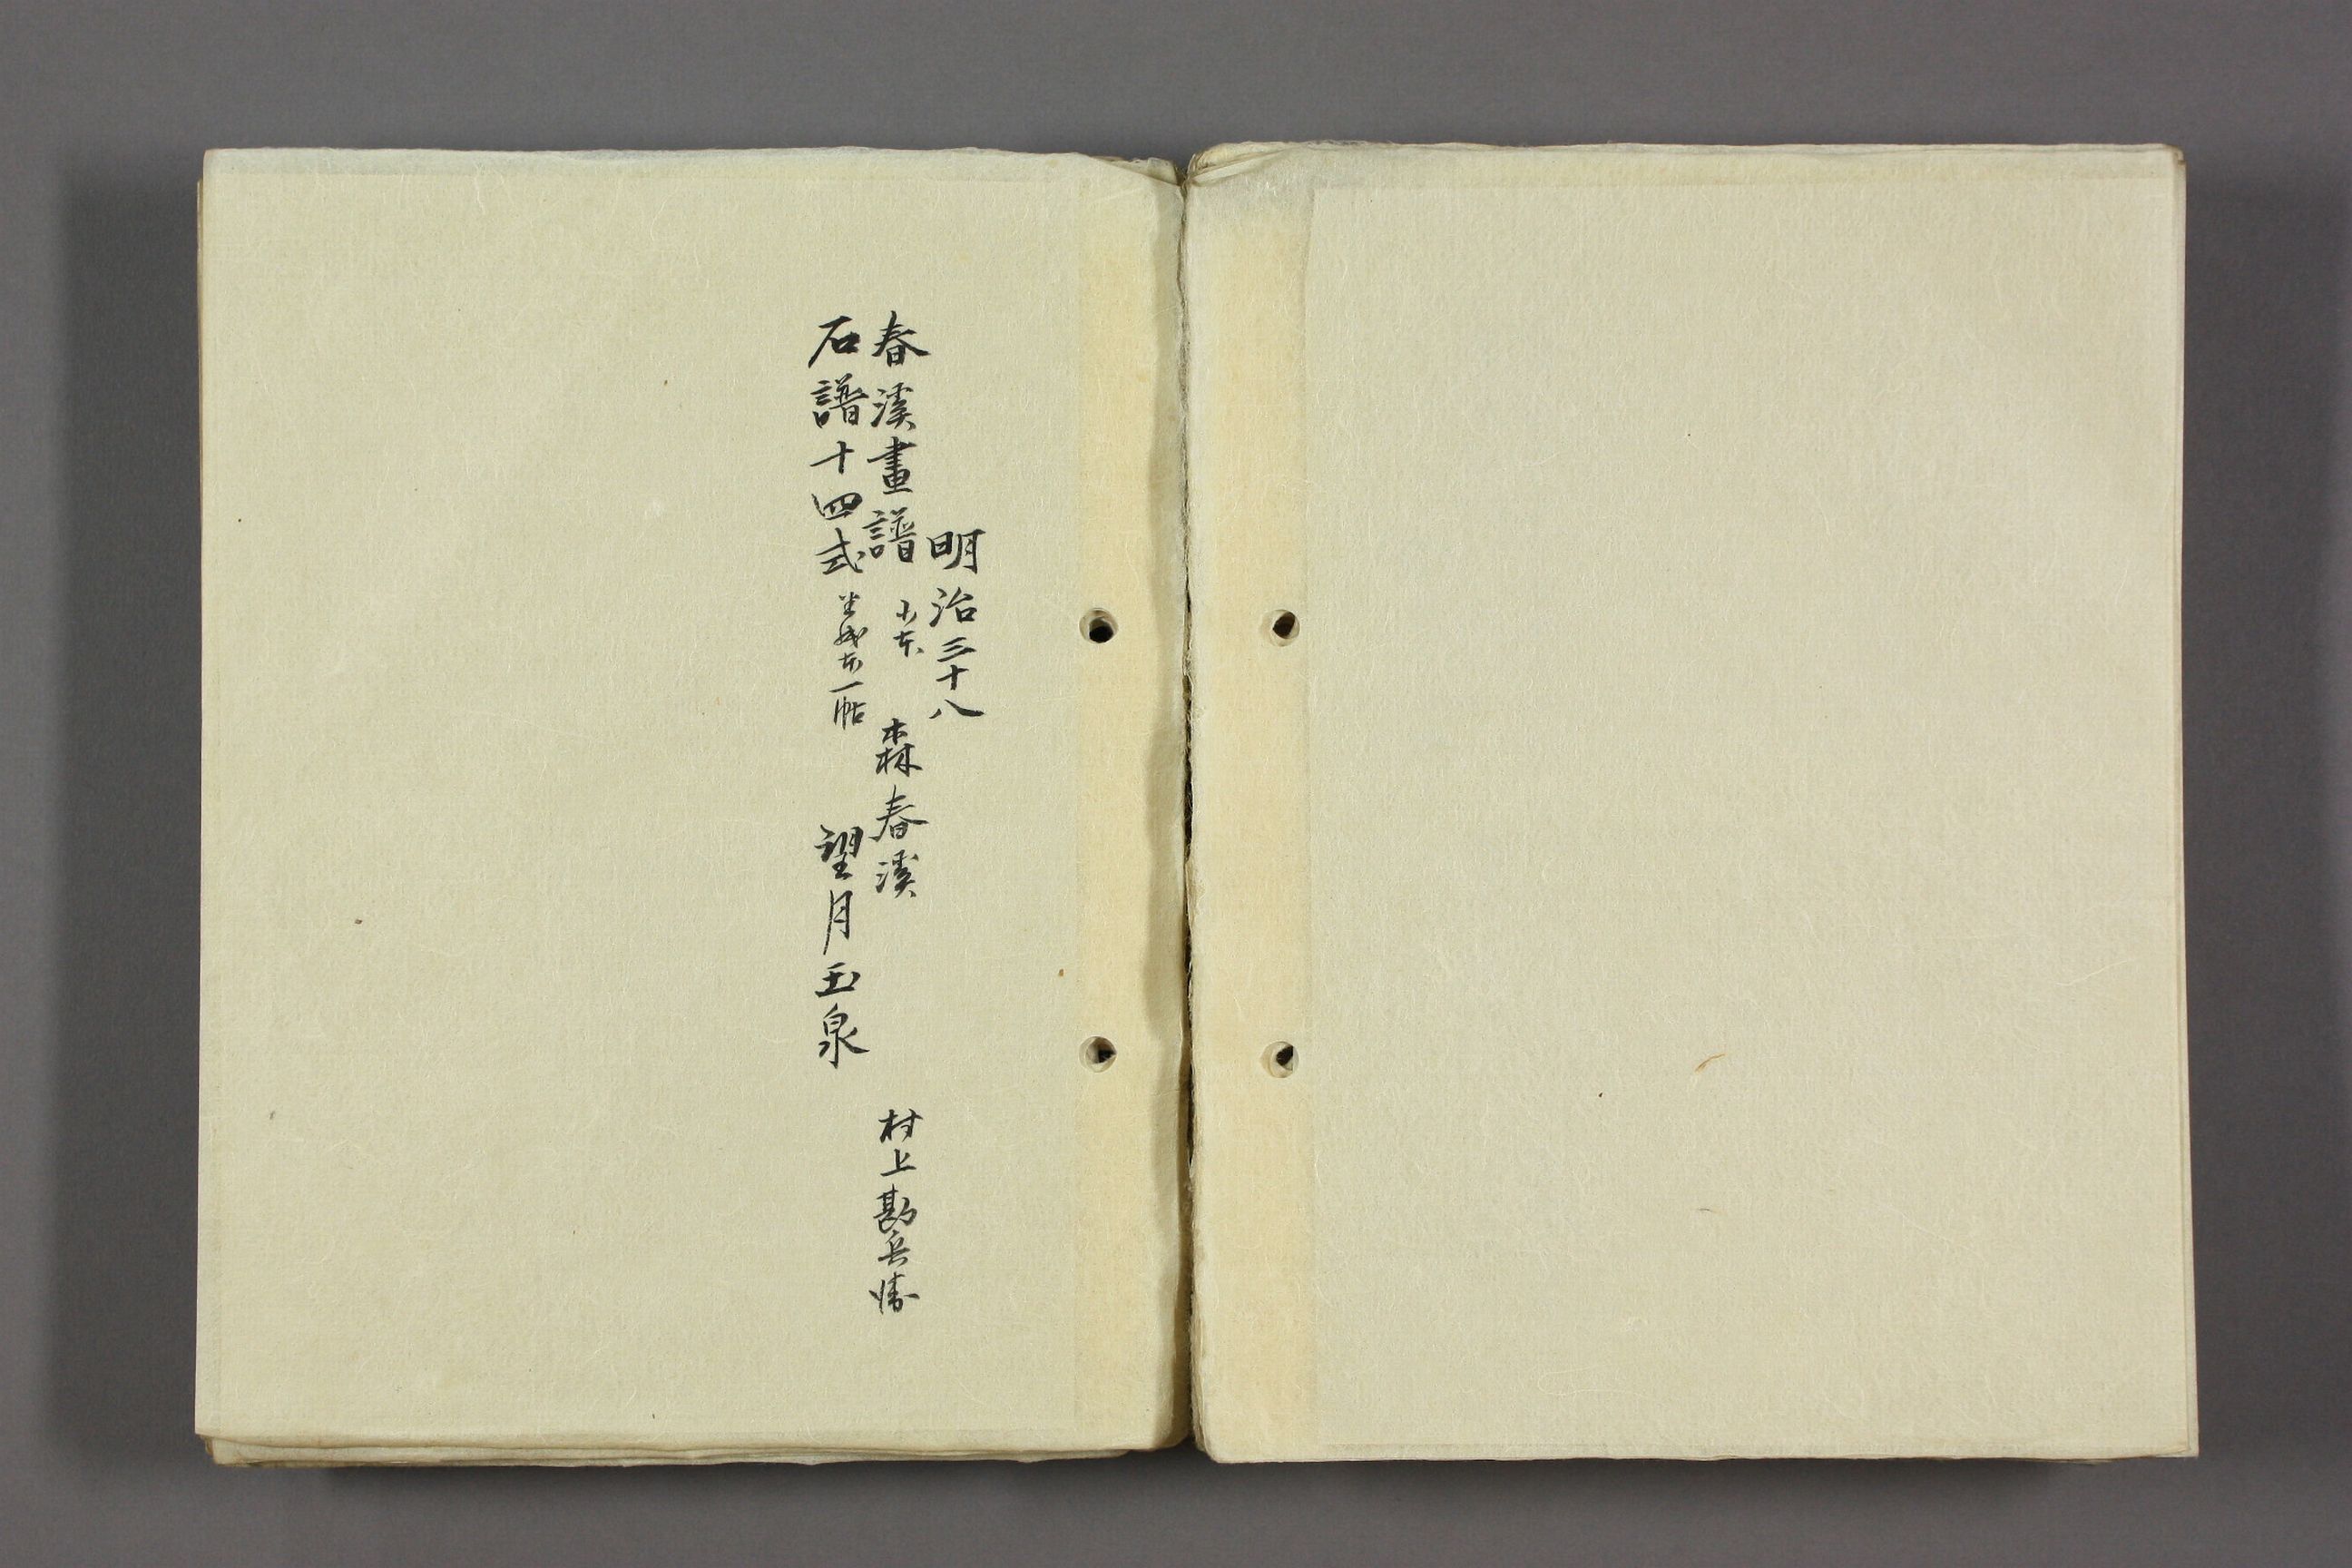 明治三十八
春溪畫譜 小本 森春溪 村上勘兵衛
石譜十四式 一帖 望月玉泉